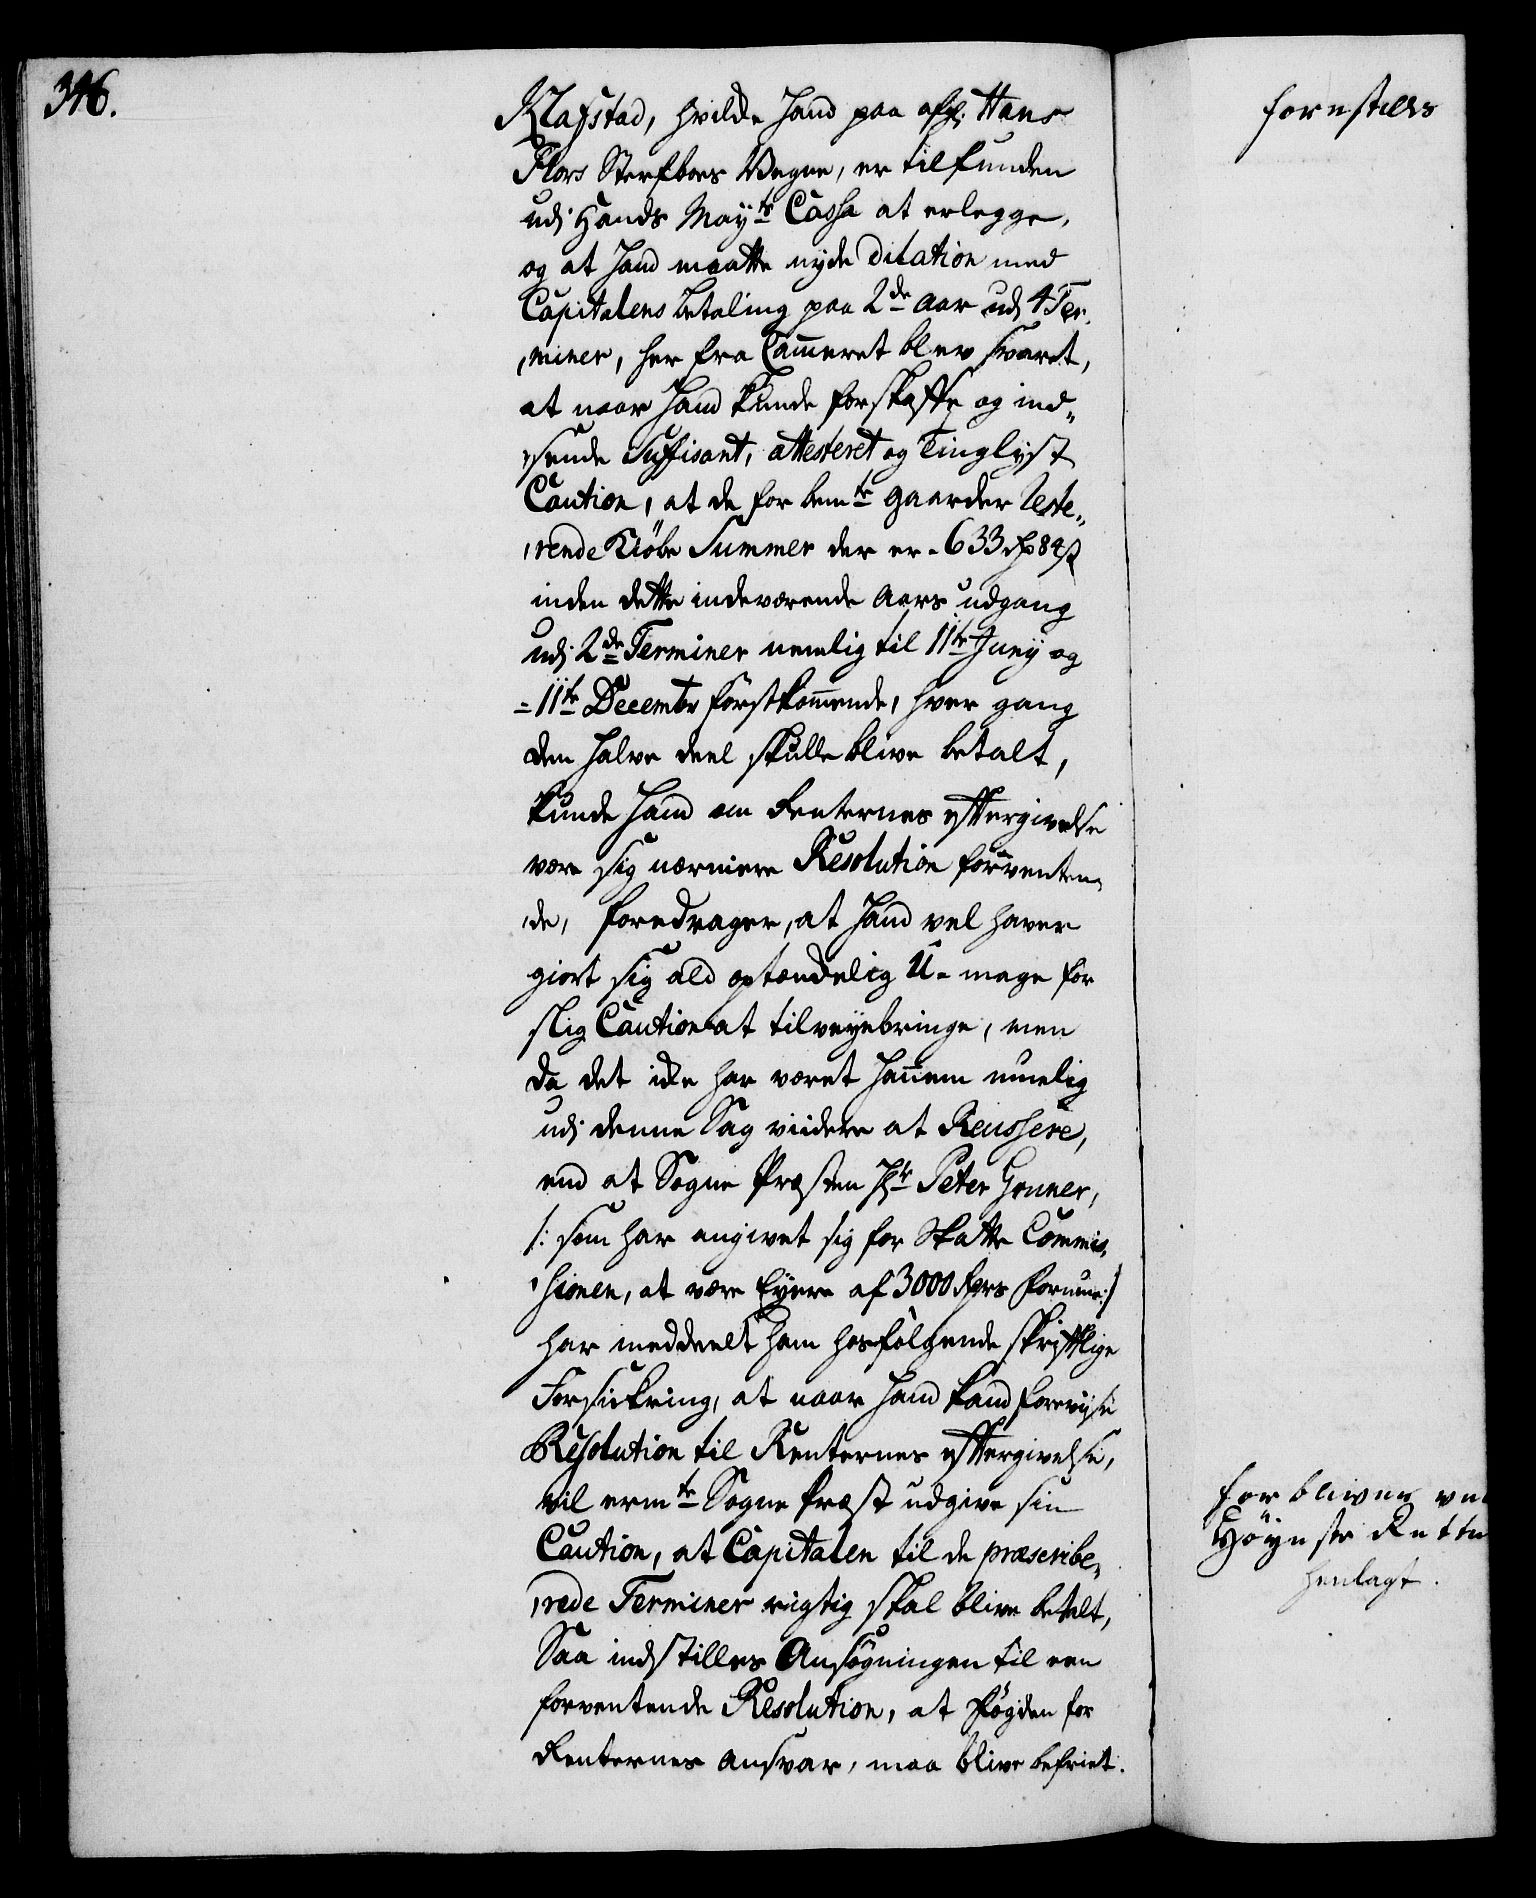 346.
Klafstad, hvilke hand paa afg: Hans
Flors Sterfboes Vegne, er tilfunden
udj Hands May:ts Cassa at erlegge,
og at hand maatte nyde Dilation med
Capitalens betaling paa 2de aar udj 4 Ter,
,miner, her fra Cam̄eret blev svaret,
at naar hand kunde forskaffe og ind„
„sende Suffisant, attesteret og Tinglyst
Caution, at de for bemte gaarder reste„
,rende Kiöbe Summer der er - 633 rd 84 s
inden dette indeværende Aars udgang
udj 2de Terminer nemlig til 11te Junij og
= 11te Decembr förstkom̄ende, hver gang
den halve deel skulle blive betalt,
kunde hand om Renternes eftergivelse
være sig nærmere Resolution forventen„
,de, foredrager, at hand vel haver
giort sig ald optændelig U-mage for
slig Caution at tilveyebringe, men
da det icke har været han̄em muelig
udj denne Sag viidere at Reussere,
end at Sogne Præsten Hr Peter Gonner,
/: som har angivet sig for Skatte Commis„
,sionen, at være Eyere af 3000 Rdrs formue :/
har meddeelt ham hosfölgende skriftlige
Forsickring, at naar hand kand foreviise
Resolution til Renternes eftergivelse,
vil ermte Sogne Præst udgive sin
Caution, at Capitalen til de præscribe„
,rede Terminer rigtig skal blive betalt,
Saa indstilles Ansögningen til een
forventende Resolution, at Fogden for
Renternes ansvar, maa blive befriet.
forestilles
forbliver ved
Höyeste Rette
henlagt.